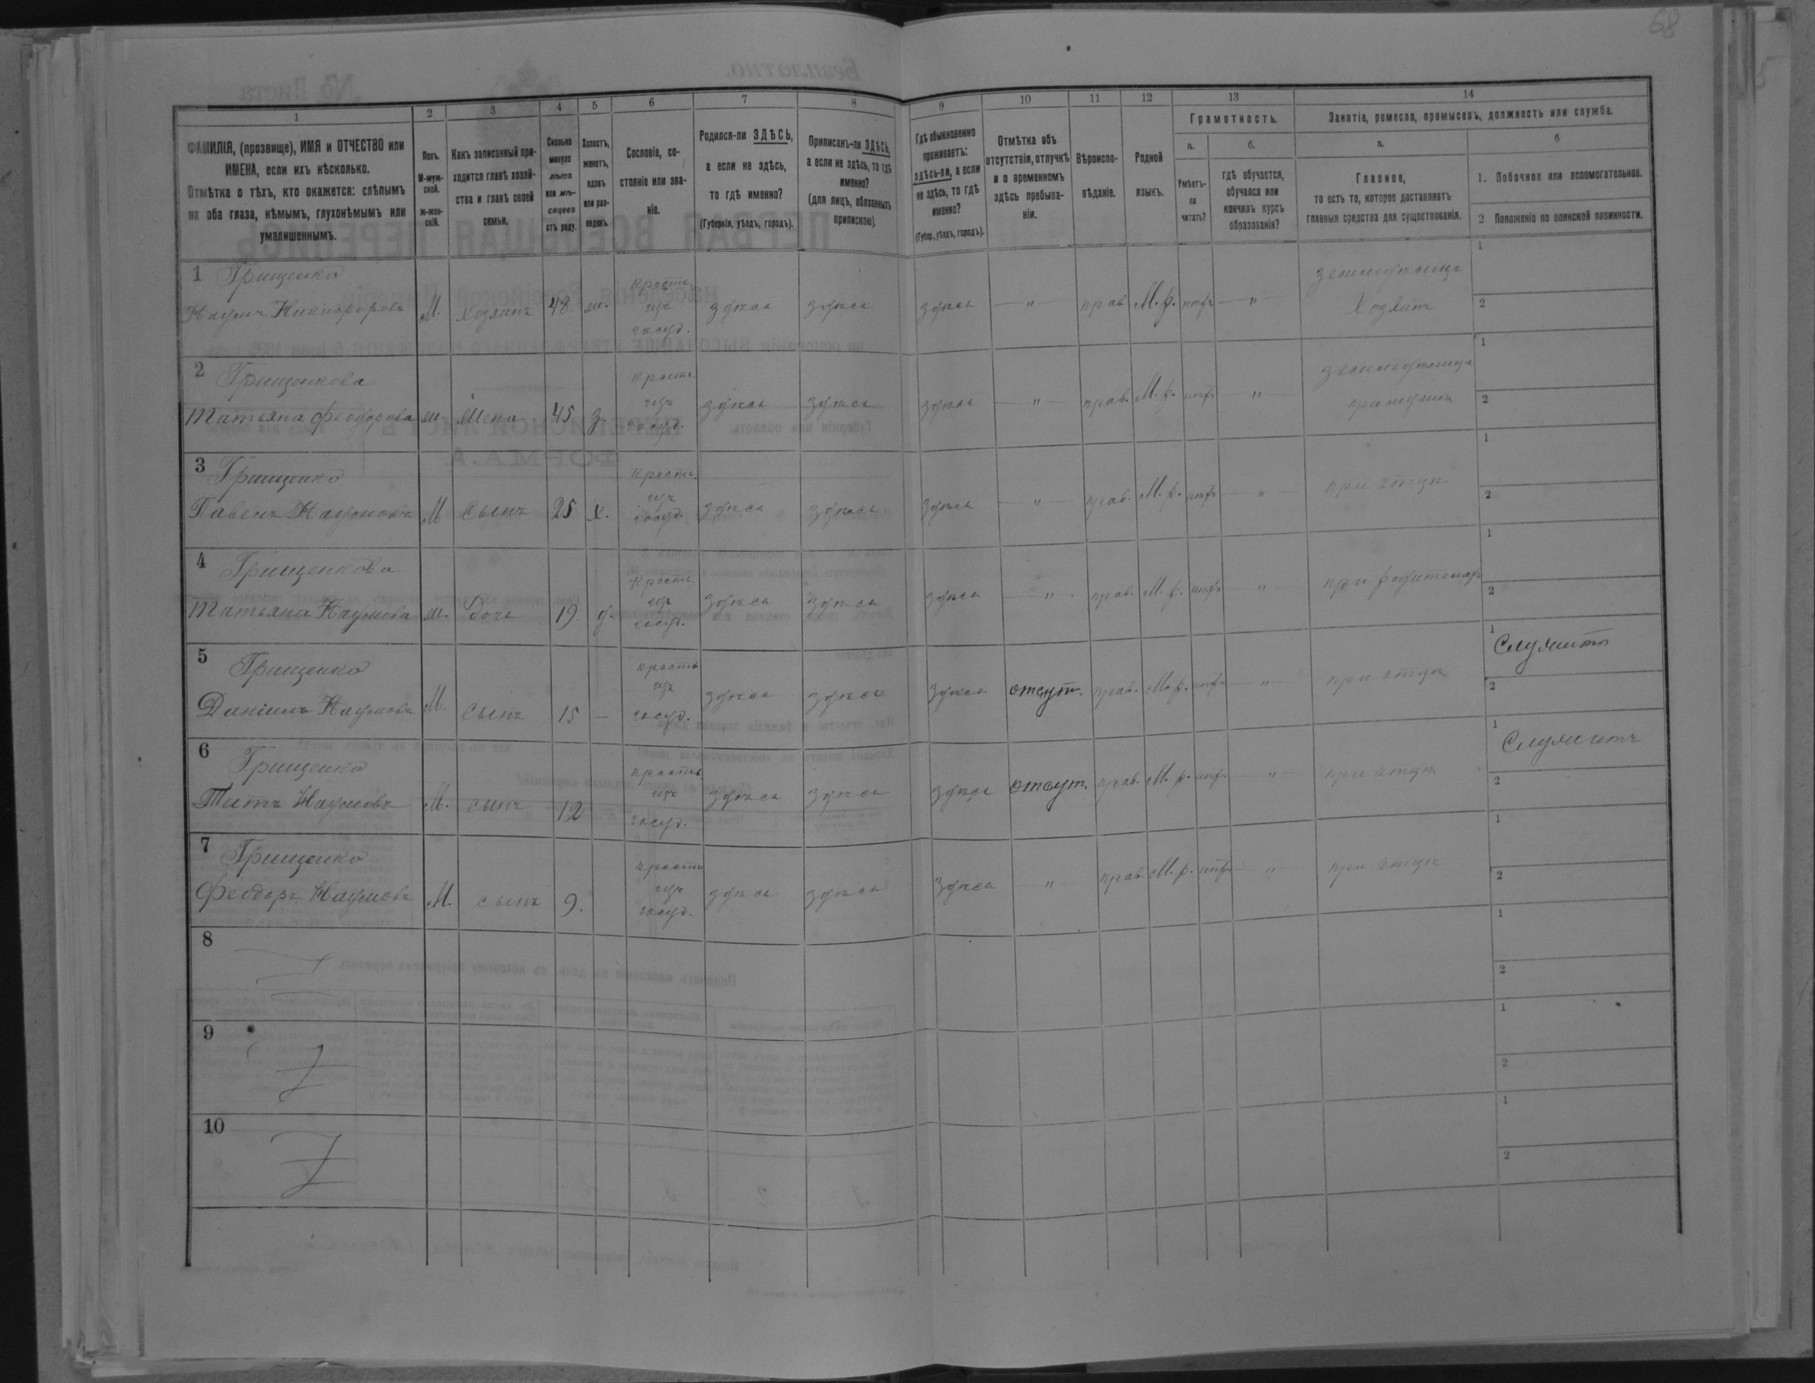 68
1 2 3 4 5 6 7 8 9 10 11 12 13 14
ФАМИЛІЯ, (прозвище), ИМЯ и ОТЧЕСТВО или
ИМЕНА, если ихъ нѣсколько.
Отмѣтка о тѣхъ, кто окажется: слѣпымъ
на оба глаза, нѣмымъ, глухонѣмымъ или
умалишеннымъ.
Полъ.
М-муж-
ской.
ж-жен-
скій.
Какъ записанный при-
ходится главѣ хозяй-
ства и главѣ своей
семьи.
Сколько
минуло
лѣтъ
или мѣ-
сяцевъ
отъ роду.
Холостъ,
женатъ,
вдовъ
или раз-
веденъ.
Сословіе, со-
стояніе или зва-
ніе.
Родился-ли ЗДѢСЬ,
а если не здѣсь,
то гдѣ именно?
(Губернія, уѣздъ, городъ).
Приписанъ-ли ЗДѢСЬ,
а если не здѣсь, то гдѣ
именно?
(для лицъ, обязанныхъ
припискою).
Гдѣ обыкновенно
проживаетъ:
здѣсь-ли, а если
не здѣсь, то гдѣ
именно?
(Губер., уѣздъ, городъ).
Отмѣтка объ
отсутствіи, отлучкѣ
и о временномъ
здѣсь пребыва-
ніи.
Вѣроиспо-
вѣданіе.
Родной
языкъ.
Грамотность.
а.
Умѣетъ-
ли
читать?
б.
гдѣ обучается,
обучался или
кончилъ курсъ
образованія?
Занятіе, ремесло, промыселъ, должность или служба.
а.
Главное,
то есть то, которое доставляетъ
главныя средства для существованія.
б
1. Побочное или вспомогательное.
2 Положеніе по воинской повинности.
1 Грищенко
Наумъ Никифоровъ М. Хозяинъ 48. ж. крестъ. изъ госуд. здѣсь здѣсь здѣсь — " — прав. М. р. нѣтъ — " — земледѣлецъ Хозяинъ 1 2
2 Грищенкова
Татьяна Феодорова ж. Жена 45 з. крестъ. изъ госуд. здѣсь здѣсь здѣсь — " — прав. М. р. нѣтъ — " — земледѣлица при мужѣ 1 2
3 Грищенко
Павелъ Наумовъ М сынъ 25 х. крестъ. изъ госуд. здѣсь здѣсь здѣсь — " — прав. М. р. нѣтъ — " — при отцѣ 1 2
4 Грищенкова
Татьяна Наумова ж. Дочь 19. д. крестъ. изъ госуд. здѣсь здѣсь здѣсь — " — прав. М. р. нѣтъ — " — при родителяхъ 1 2
5 Грищенко
Даніилъ Наумовъ М. сынъ 15 — крестъ изъ госуд. здѣсь здѣсь здѣсь отсут. прав. М. р. нѣтъ — " — при отцѣ 1 Служитъ 2
6 Грищенко
Титъ Наумовъ М. сынъ 12 — крестъ изъ госуд. здѣсь здѣсь здѣсь отсут. прав. М. р. нѣтъ — " — при отцѣ 1 Служитъ 2
7 Грищенко
Феодоръ Наумовъ М. сынъ 9. крестъ изъ госуд. здѣсь здѣсь здѣсь " прав. М. р. нѣтъ — " — при отцѣ 1 2
8 1 2
9 1 2
10 1 2